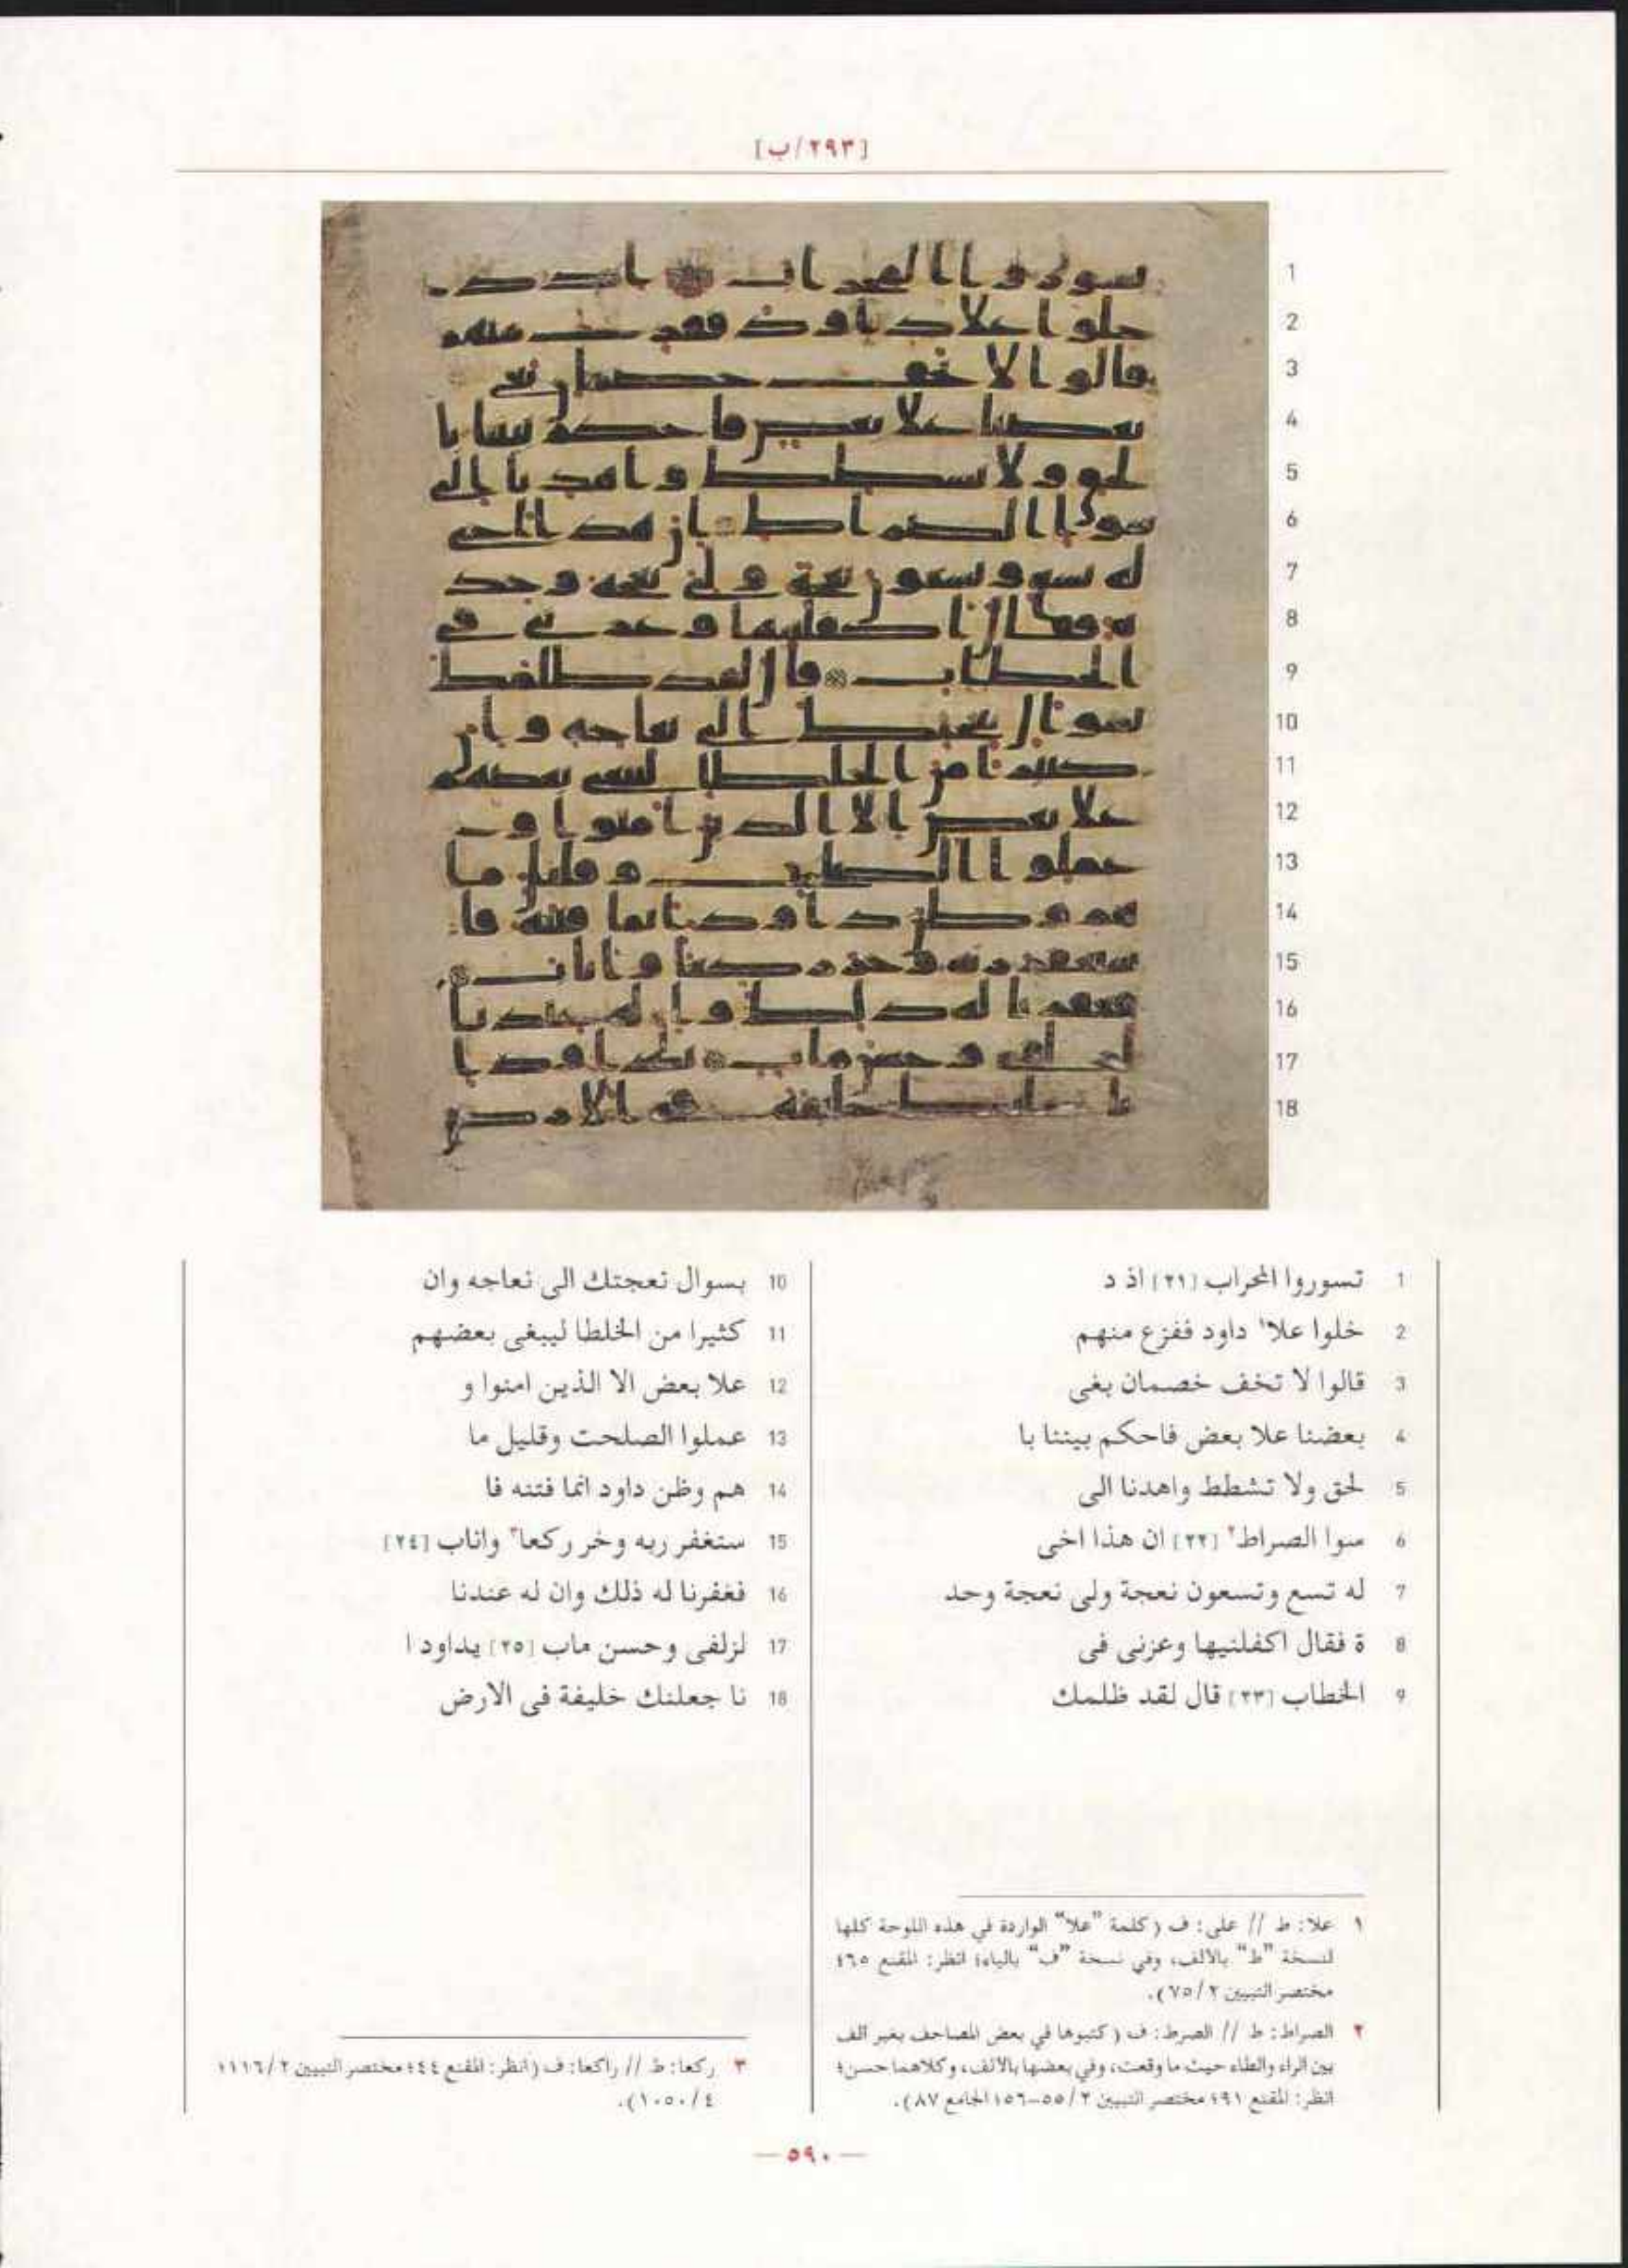 [٢٩٣/ب]
1 تسوروا المحراب [٢١] اذ د
2 خلوا علا١ داود ففزع منهم
3 قالوا لا تخف خصمان بغى
4 بعضنا علا بعض فاحكم بيننا با
5 لحق ولا تشطط واهدنا الى
6 سوا الصراط٢ [٢٢] ان هذا اخى
7 له تسع وتسعون نعجة ولى نعجة وحد
8 ة فقال اكفلنيها وعزنى فى
9 الخطاب [٢٣] قال لقد ظلمك
10 بسوال نعجتك الى نعاجه وان
11 كثيرا من الخلطا ليبغى بعضهم
12 علا بعض الا الذين امنوا و
13 عملوا الصلحت وقليل ما
14 هم وظن داود انما فتنه فا
15 ستغفر ربه وخر ركعا٣ واناب [٢٤]
16 فغفرنا له ذلك وان له عندنا
17 لزلفى وحسن ماب [٢٥] يداود ا
18 نا جعلنك خليفة فى الارض
١ علا: ط // على: ف (كلمة "علا" الواردة في هذه اللوحة كلها
لنسخة "ط" بالالف، وفي نسخة "ف" بالياء؛ انظر: المقنع ٤٦٥
مختصر التبيين ٧٥/٢).
٢ الصراط: ط // الصرط: ف (كتبوها في بعض المصاحف بغير الف
بين الراء والطاء حيث ما وقعت، وفي بعضها بالالف، وكلاهما حسن؛
انظر: المقنع ٩١؛ مختصر التبيين ٥٥/٢-٥٦؛ الجامع ٨٧).
٣ ركعا: ط // راكعا: ف (انظر: المقنع ٤٤؛ مختصر التبيين ١١١٦/٢
١٠٥٠/٤).
— ٥٩٠ —